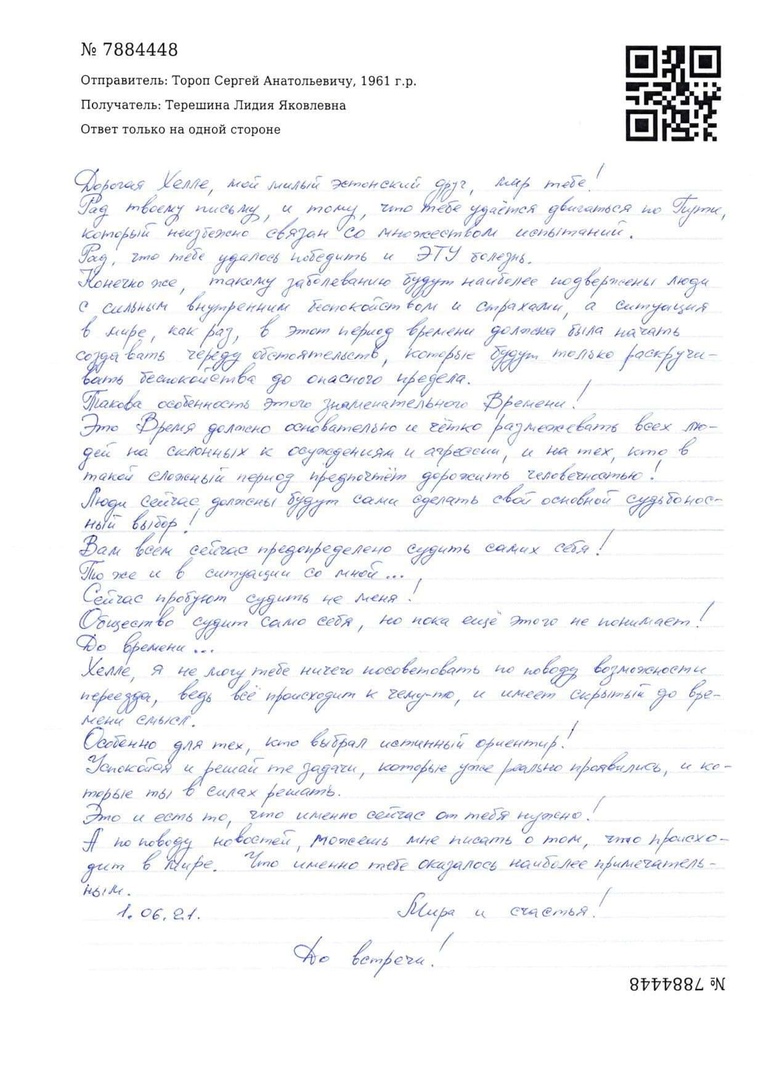 № 7884448
Отправитель: Тороп Сергей Анатольевичу, 1961 г.р.
Получатель: Терешина Лидия Яковлевна
Ответ только на одной стороне
Дорогая Хелле, мой милый эстонский друг, мир тебе!
Рад твоему письму, и тому, что тебе удаётся двигаться по Пути,
который неизбежно связан со множеством испытаний.
Рад, что тебе удалось победить и ЭТУ болезнь.
Конечно же, такому заболеванию будут наиболее подвержены люди
с сильным внутренним беспокойством и страхами, а ситуация
в мире, как раз, в этот период времени должна была начать
создавать череду обстоятельств, которые будут только раскручи-
вать беспокойства до опасного предела.
Такова особенность этого знаменательного Времени!
Это Время должно основательно и чётко размежевать всех лю-
дей на склонных к осуждениям и агрессии, и на тех, кто в
такой сложный период предпочтёт дорожить человечностью!
Люди сейчас должны будут сами сделать свой основной судьбонос-
ный выбор!
Вам всем сейчас предопределено судить самих себя!
То же и в ситуации со мной...
Сейчас пробуют судить не меня!
Общество судит само себя, но пока ещё этого не понимает!
До времени...
Хелле, я не могу тебе ничего посоветовать по поводу возможности
переезда, ведь всё происходит к чему-то, и имеет скрытый до вре-
мени смысл.
Особенно для тех, кто выбрал истинный ориентир!
Успокойся и решай те задачи, которые уже реально проявились, и ко-
торые ты в силах решать.
Это и есть то, что именно сейчас от тебя нужно!
А по поводу новостей, можешь мне писать о том, что происхо-
дит в мире. Что именно тебе оказалось наиболее примечатель-
ным.
1.06.21. Мира и счастья!
До встречи!
№ 7884448